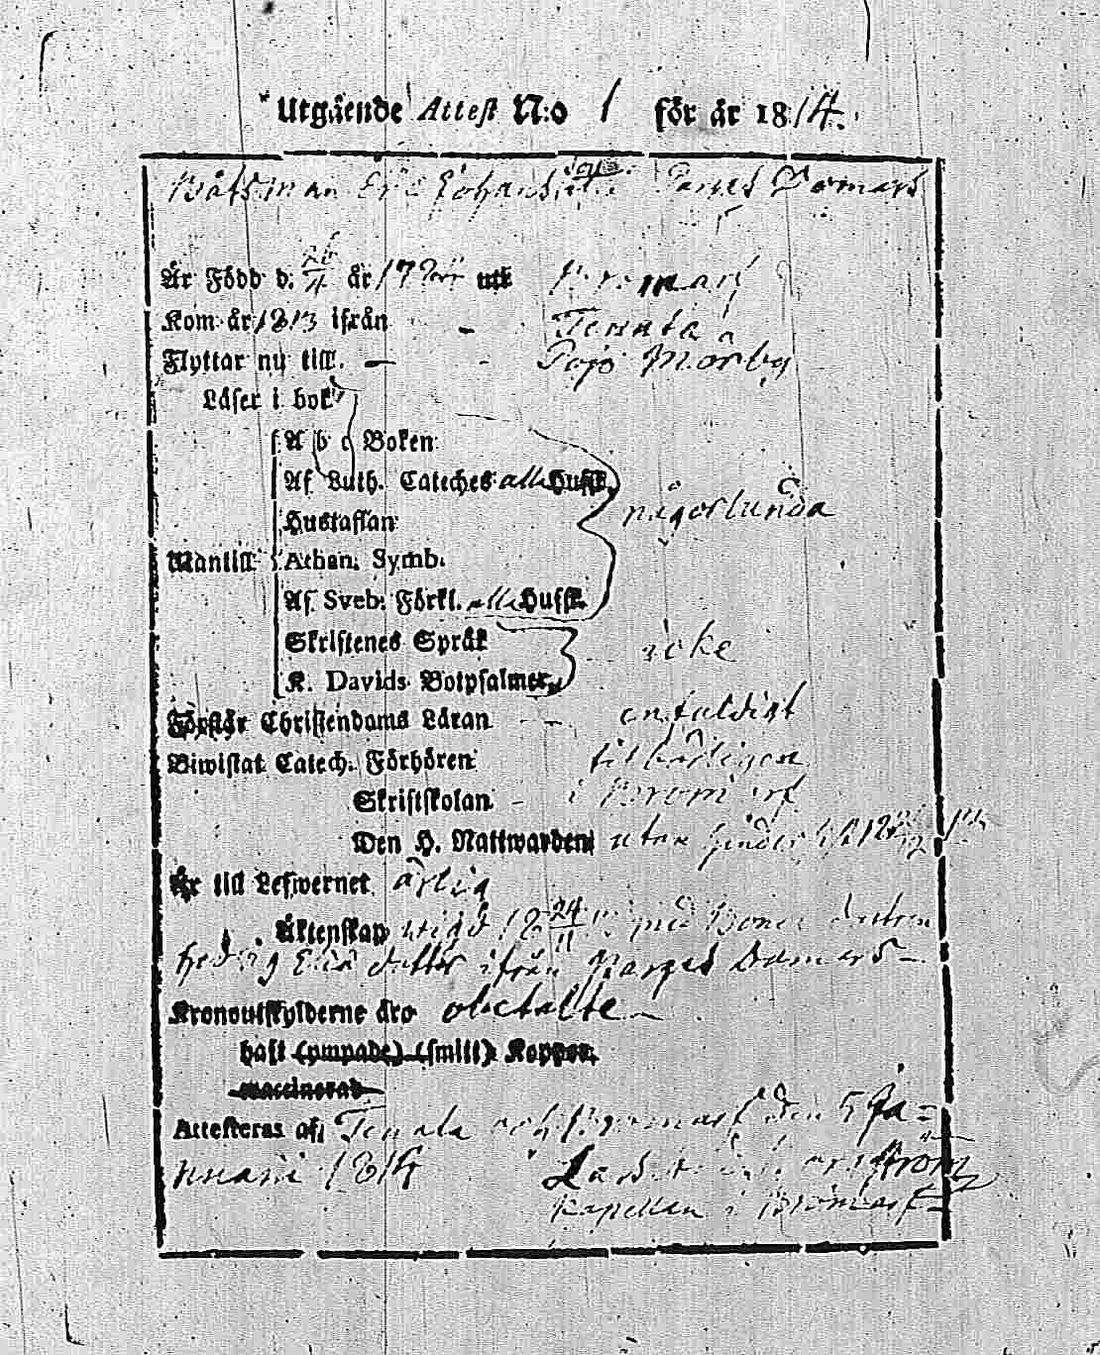 Utgående Attest N:o 1 för år 1814.
Båtsman Eric Johansson Domars
Är Född d. 26/11 år 17 uti Bromarf
Kom år 1813 ifrån - Tenala
Flyttar nu till. - Pojo Mörby
Läser i bok
A b c Boken
Af Luth. Cateches alla Hufst. någorlunda
Hustaflan
Wantill Athan. Symb.
Af Sveb. Förkl. alla Hufst.
Skriftenes Språk icke
K. Davids Botpsalmer
Förstår Christendoms Läran - enfaldigt
Biwistat Catech. Förhören tilbörligen
Skriftskolan - i Bromarf
Den H. Nattwarden utan hinder
Är till Lefwernet ärlig
Äktenskap wigd 18 24/11 med Bonde dottren
Hedvig Ericsdotter ifrån Domars -
Kronoutskylderne äro obetalte -
haft (ympade) (smitt) Koppor.
vaccinerad
Attesteras af Tenala och Bromarf den 5 Ja=
nuarii 1814
Kapellan i Bromarf